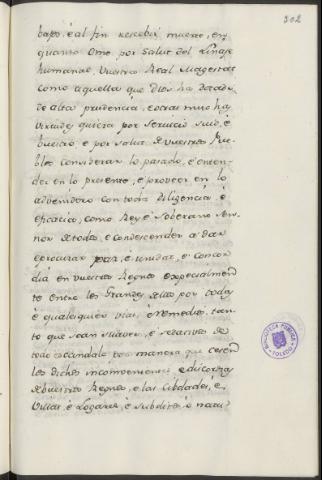 302
bajo, é al fin rescebir muerte, en
quanto Ome por salut del linaje
humanal, Vuestra Real Magestat
como aquella que Dios ha dotado
de alta prudencia, é otras muchas
virtudes quiera por servicio suio, é
vuestro, é por salut de vuestros Pue-
blos considerar lo pasado, é enten-
der en lo presente, é proveer en lo
advenidero con toda diligencia é
eficacia, como Rey é Soberano Sen-
nor de todos, é condescender a dar
é procurar paz, é unidat, é concor-
dia en vuestros Regnos especialmen-
te entre los Grandes dellos por todas
é qualesquier vias, é remedios, tan-
to que sean suaves, é sedativos de
todo escandalo por manera que cesen
los dichos inconvenientes é discordias
de vuestros Regnos, é las Cibdades, é
Villas, é Logares, é subditos é natu-
BIBLIOTECA PUBLICA
TOLEDO